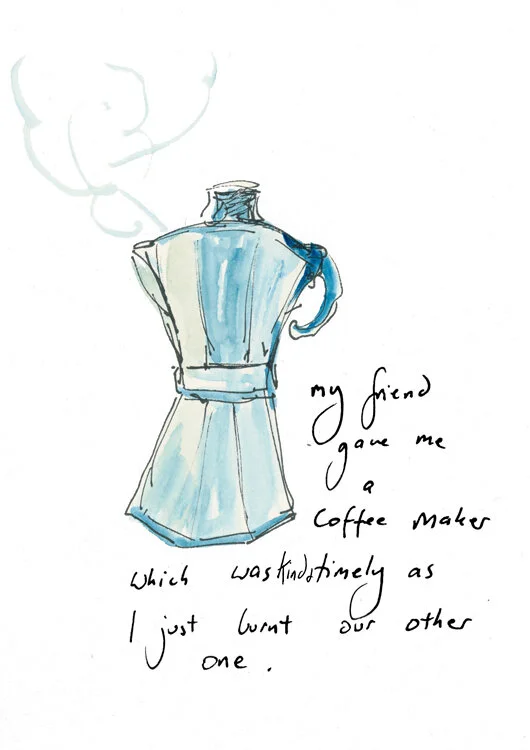 my friend
gave me
a
Coffee Maker
which was kinda timely as
I just burnt our other
one.